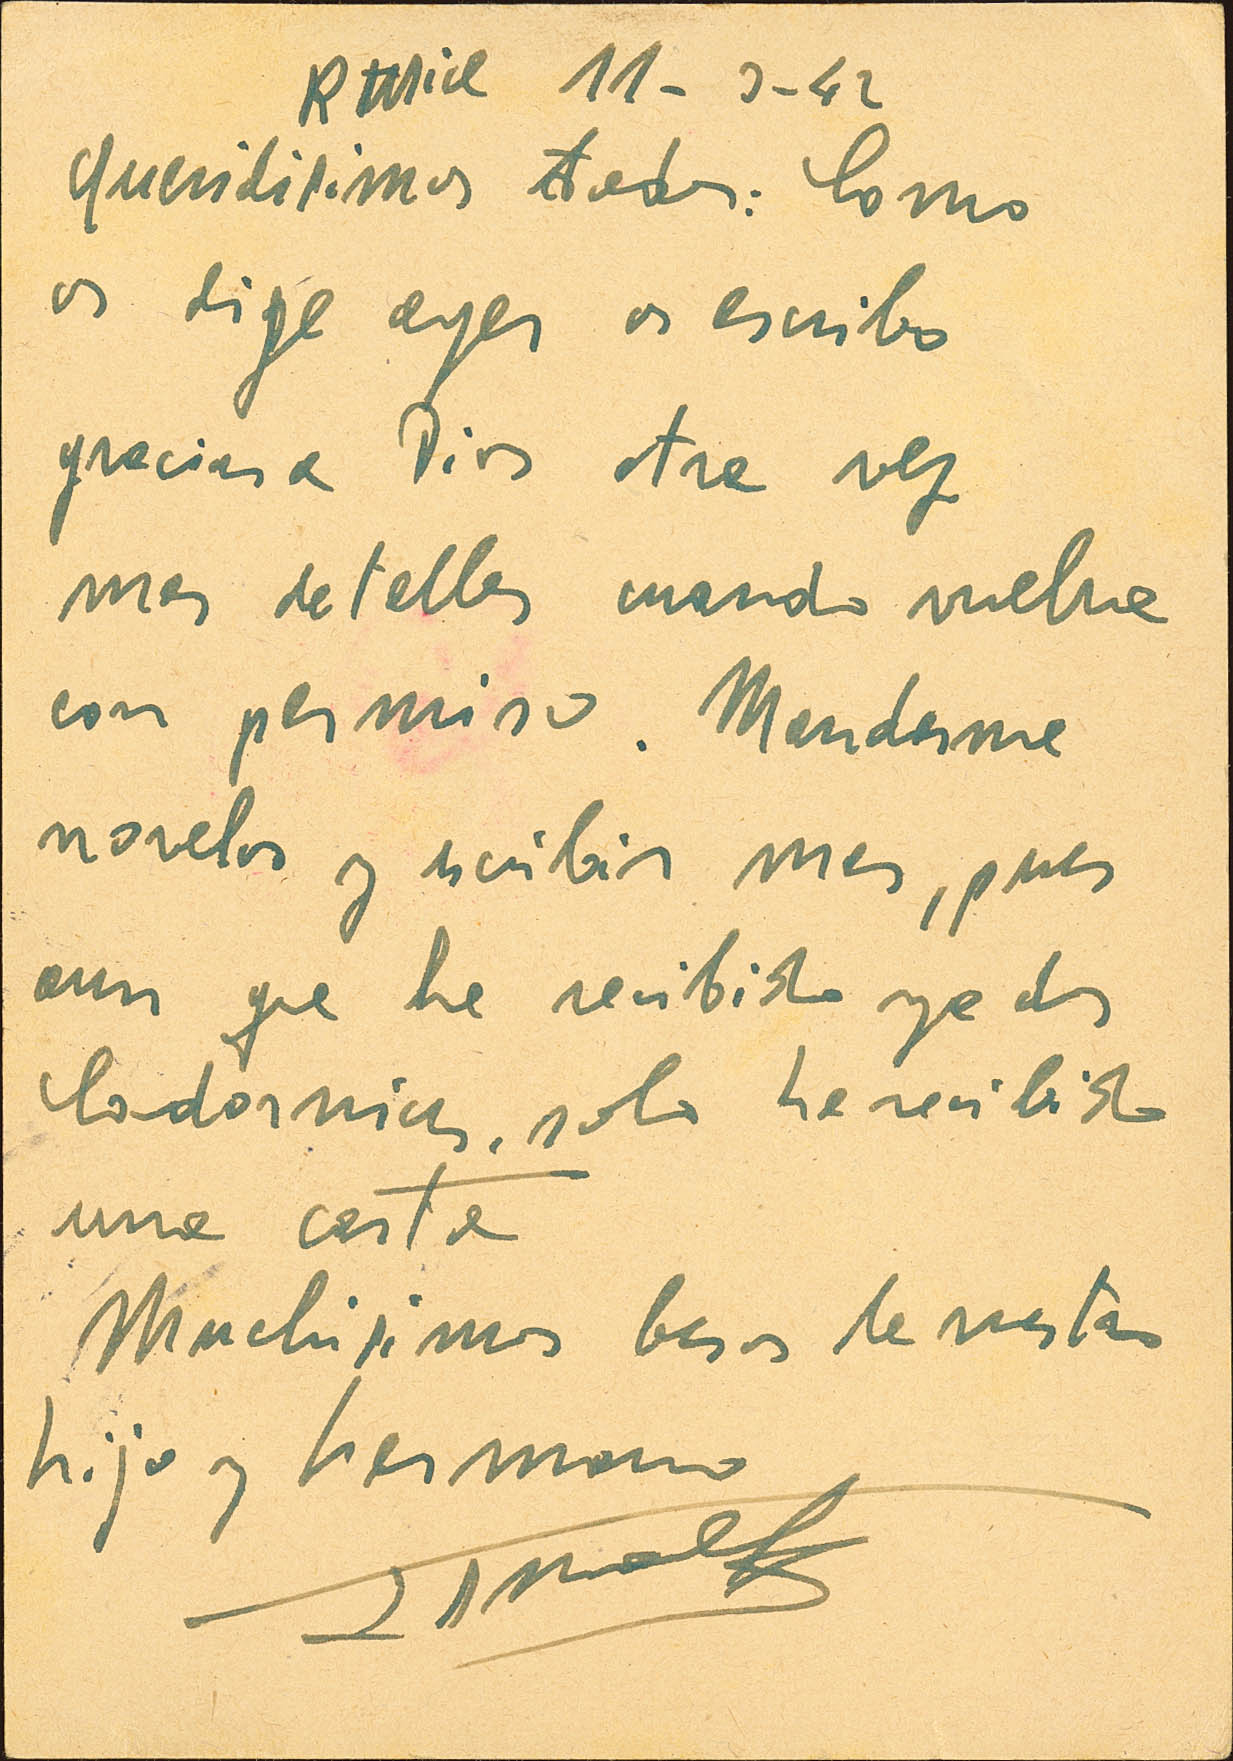 Rusia 11-3-42
Queridisimos todos: Como
os dige ayer os escribo
gracias a Dios otra vez
mas detalles cuando vuelva
con permiso. Mandarme
novelas y escribir mas, pues
aun que he recibido ya dos
Codornices, solo he recibido
una carta
Muchisimos besos de vuestro
hijo y hermano
Ismael